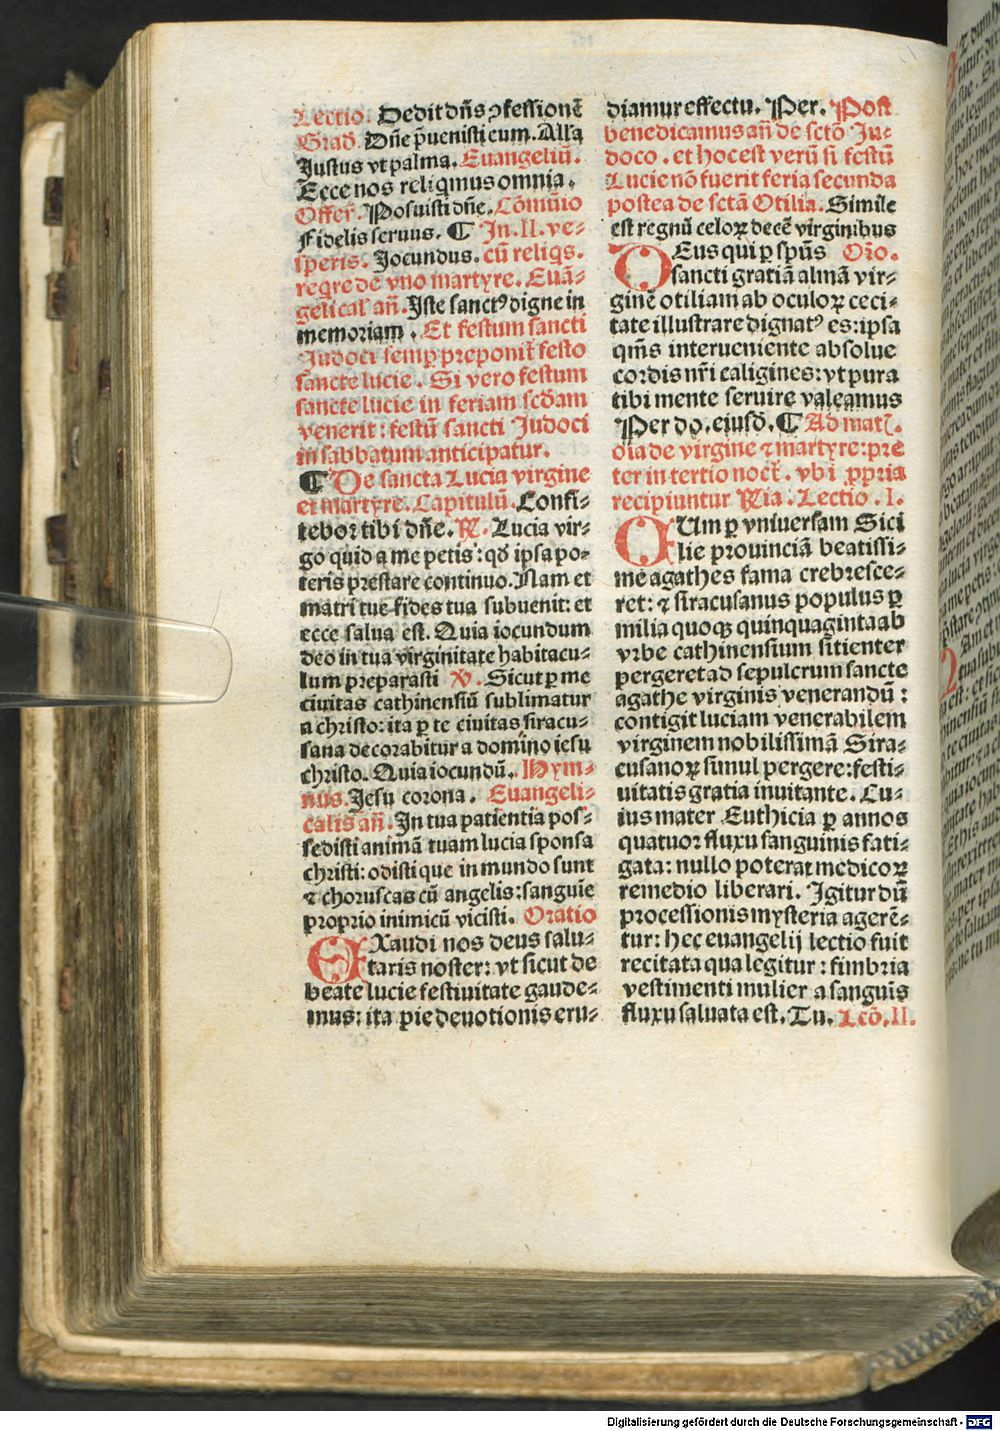 Lectio. Dedit dn̄s ꝯfessionē
Grad̄. Dn̄e p̄uenisti eum. Alla
Justus vt palma. Euangeliū.
Ecce nos reliqimus omnia.
Offer̄. Posuisti dn̄e. Cōmūio
Fidelis seruus. ¶ In .II. ve⸗
speris. Jocundus. cū reliqs.
reqre de vno martyre. Euā⸗
gelical̄ añ. Iste sanctꝰ digne in
memoriam. Et festum sancti
Judoci semꝑ preponit̄ festo
sancte lucie. Si vero festum
sancte lucie in feriam scd̄am
venerit: festū sancti Judoci
in sabbatum anticipatur.
¶ De sancta Lucia virgine
et martyre. Capitulū. Confi⸗
tebor tibi dn̄e. ℟. Lucia vir⸗
go quid a me petis: qd̄ ipsa po⸗
teris prestare continuo. Nam et
matri tue fides tua subuenit: et
ecce salua est. Quia iocundum
deo in tua virginitate habitacu⸗
lum preparasti ℣. Sicut ꝑ me
ciuitas cathinensiū sublimatur
a christo: ita ꝑ te ciuitas siracu⸗
sana decorabitur a domino iesu
christo. Quia iocundū. Hym⸗
nus. Jesu corona. Euangeli⸗
calis añ. In tua patientia pos⸗
sedisti animā tuam lucia sponsa
christi: odisti que in mundo sunt
⁊ choruscas cū angelis: sanguīe
proprio inimicū vicisti. Oratio
EXaudi nos deus salu⸗
taris noster: vt sicut de
beate lucie festiuitate gaude⸗
mus: ita pie deuotionis eru⸗
diamur effectu. Per. Post
benedicamus añ de sctō Ju⸗
doco. et hoc est verū si festū
Lucie nō fuerit feria secunda
postea de sctā Otilia. Simile
est regnū celoꝝ decē virginibus
DEus qui ꝑ spūs Orō.
sancti gratiā almā vir⸗
ginē otiliam ab oculoꝝ ceci⸗
tate illustrare dignatꝰ es: ipsa
qm̄s interueniente absolue
cordis nr̄i caligines: vt pura
tibi mente seruire valeamus
Per do. eiusd̄. ¶ Ad mat̄.
oīa de virgine ⁊ martyre: pre
ter in tertio noct̄. vbi ꝓpria
recipiuntur ℟ia. Lectio .I.
CUm ꝑ vniuersam Sici
lie prouinciā beatissi⸗
me agathes fama crebresce⸗
ret: ⁊ siracusanus populus ꝑ
milia quoqꝫ quinquaginta ab
vrbe cathinensium sitienter
pergeret ad sepulcrum sancte
agathe virginis venerandū:
contigit luciam venerabilem
virginem nobilissimā Sira⸗
cusanoꝝ simul pergere: festi⸗
uitatis gratia inuitante. Cu⸗
ius mater Euthicia ꝑ annos
quatuor fluxu sanguinis fati⸗
gata: nullo poterat medicoꝝ
remedio liberari. Igitur dū
processionis mysteria agerē⸗
tur: hec euangelij lectio fuit
recitata qua legitur: fimbria
vestimenti mulier a sanguīs
fluxu saluata est. Tu. Lcō. II.
Digitalisierung gefördert durch die Deutsche Forschungsgemeinschaft - DFG